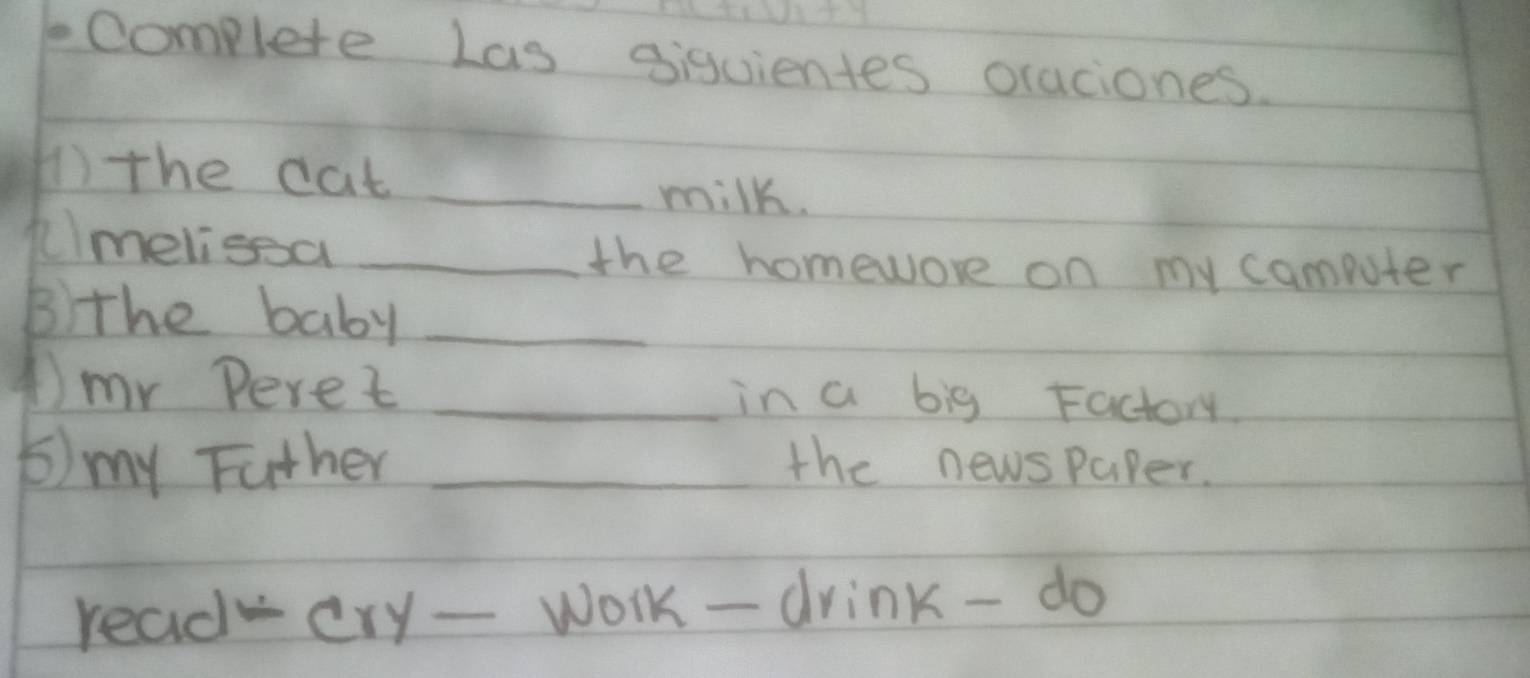 • Complete Las siguientes oraciones.
1) the cat ______ milk.
2) melissa ______ the homewore on my camputer
3) the baby ______
4) mr Perez ______ in a big Factory.
5) my Futher ______ the newspaper.
read - cry - work - drink - do